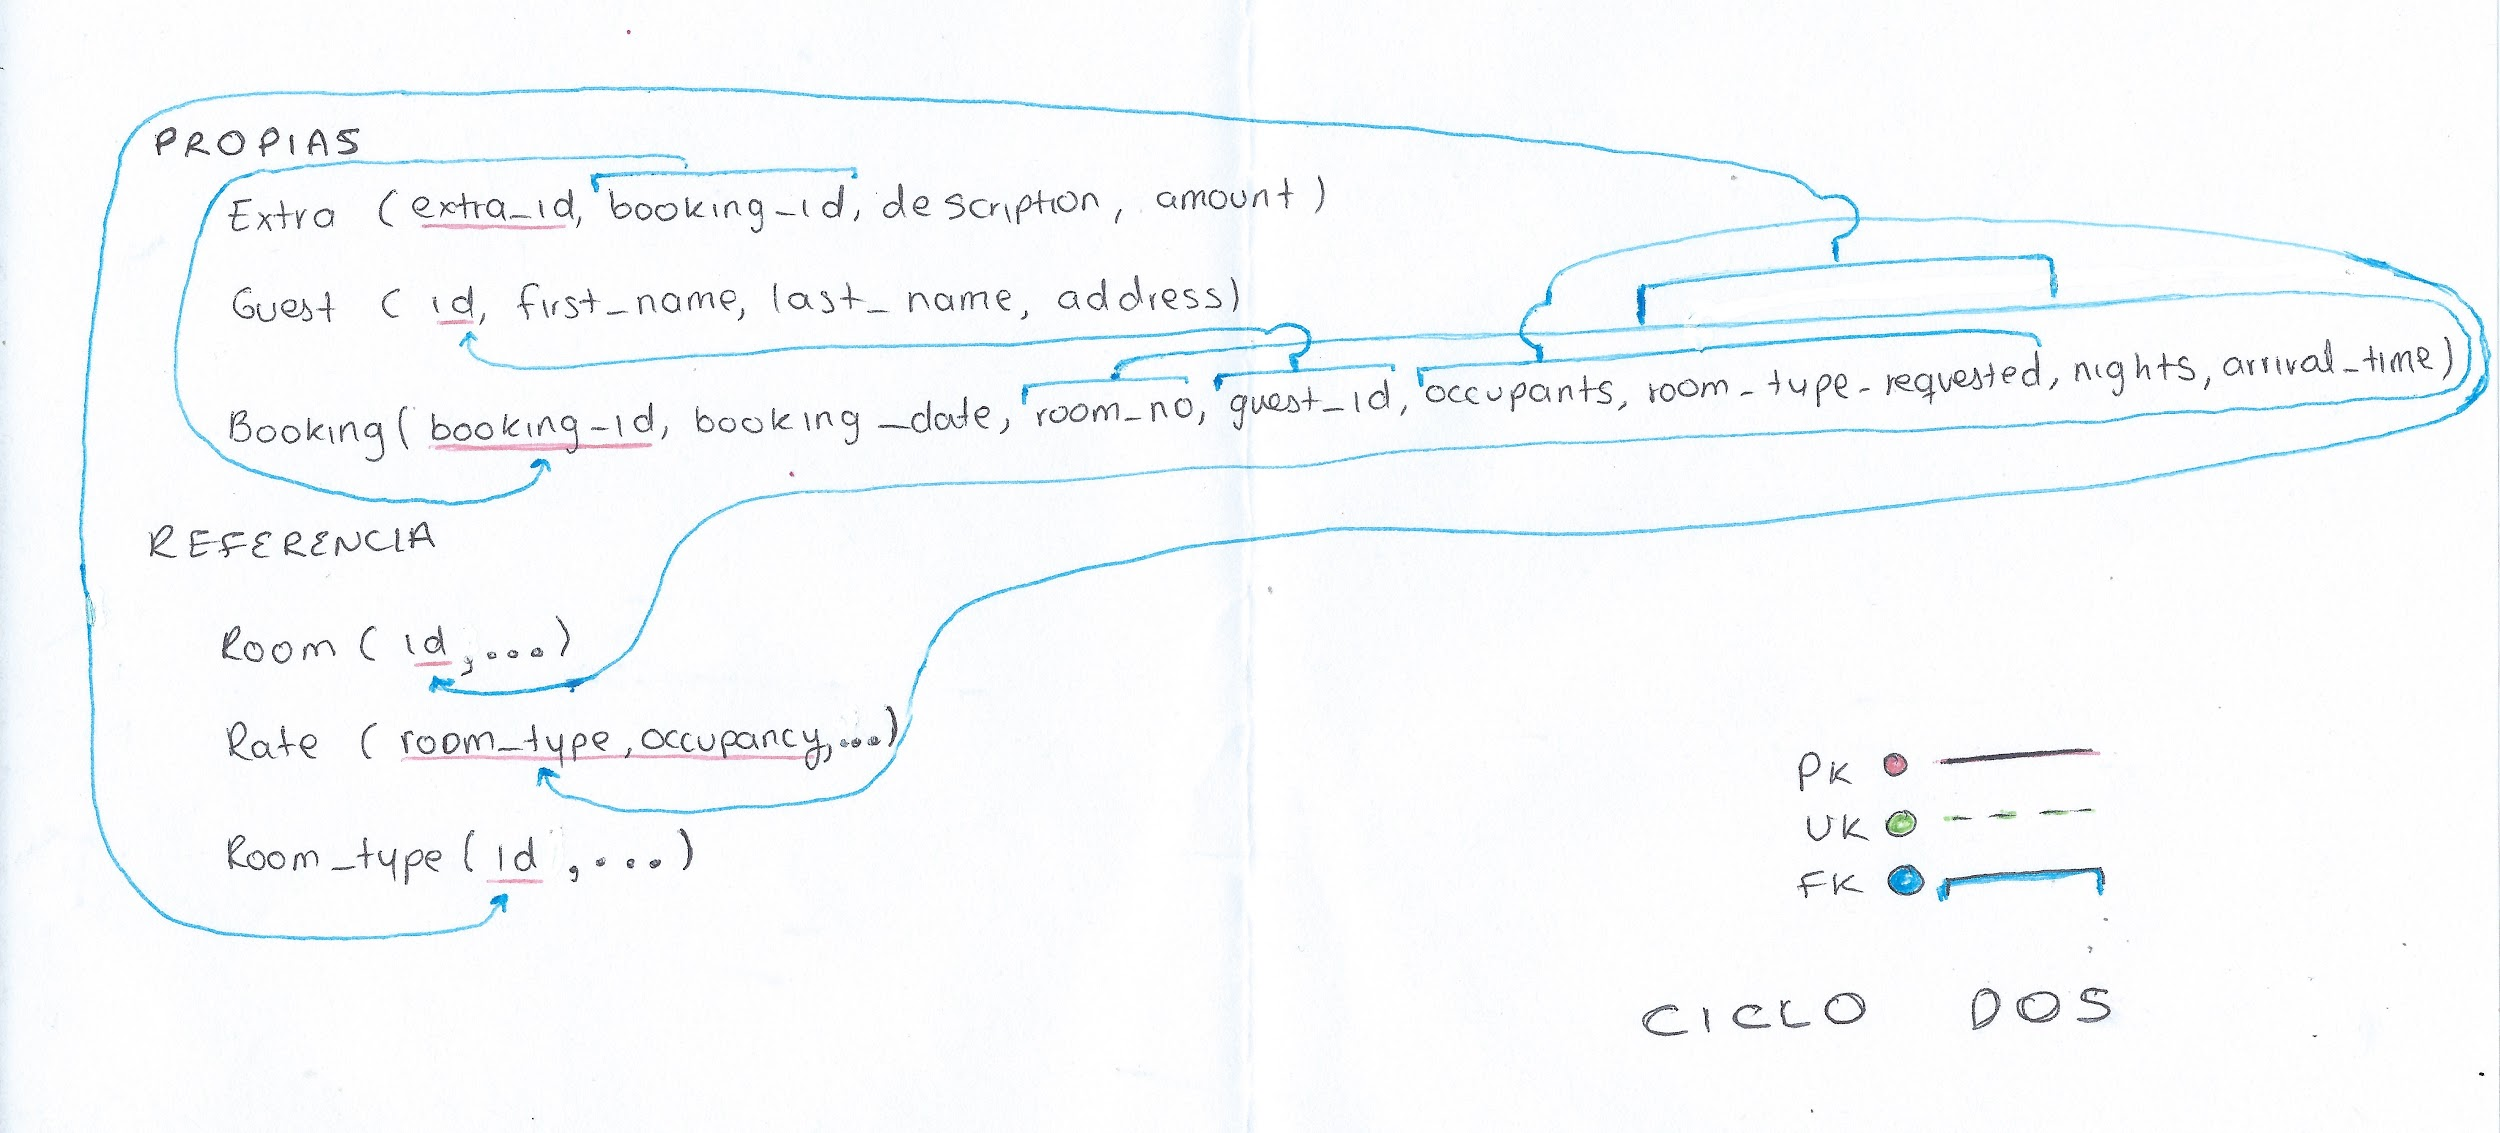 PROPIAS
Extra (extra_id, booking_id, description, amount)
Guest (id, first_name, last_name, address)
Booking (booking_id, booking_date, room_no, guest_id, occupants, room_type_requested, nights, arrival_time)
REFERENCIA
Room (id,...)
Rate (room_type, occupancy,...)
Room_type (id,...)
PK
UK
FK
CICLO DOS